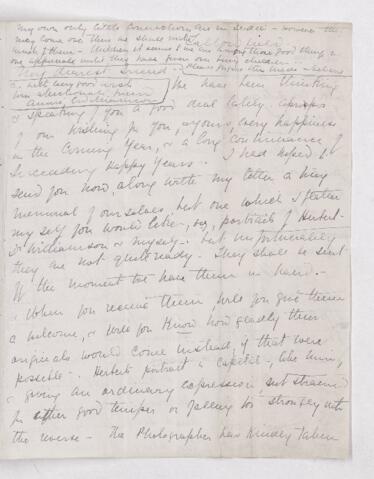 My own only little Connections are in Service - however the
may come one then we shall unite
much of them - Children it seems to me are among those good things
one appreciates until they have
My dearest friend - Please forgive this made
with very good wish
affectionate friend
We have been thinking
& speaking of you a good deal lately, apropos
of our wishing for you, & yours, every happiness
in the Coming Year, & a long Continuance of
Succeeding Happy Years. I had hoped to
send you now, along with my letter a tiny
memorial of ourselves, but one which I flatter
myself you would like, viz, portraits of Herbert
Williamson & myself. but unfortunately
they are not quite ready. They shall be sent
the moment we have them in hand. -
When you receive them, will you give them
a welcome, & will you know how gladly their
originals would come instead, if that were
possible. - Herbert's portrait is capital - like him,
& giving an ordinary expression not strained
for either good temper or falling too strongly into
the reverse - The Photographer has kindly taken